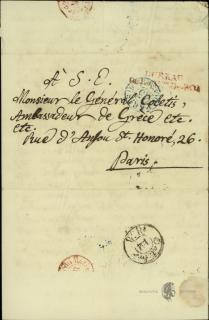 À S. E.
Monsieur le Général Coletis,
Ambassadeur de Grèce etc.
etc.
Rue d'Anjou St. Honoré, 26.
Paris.
BUREAU